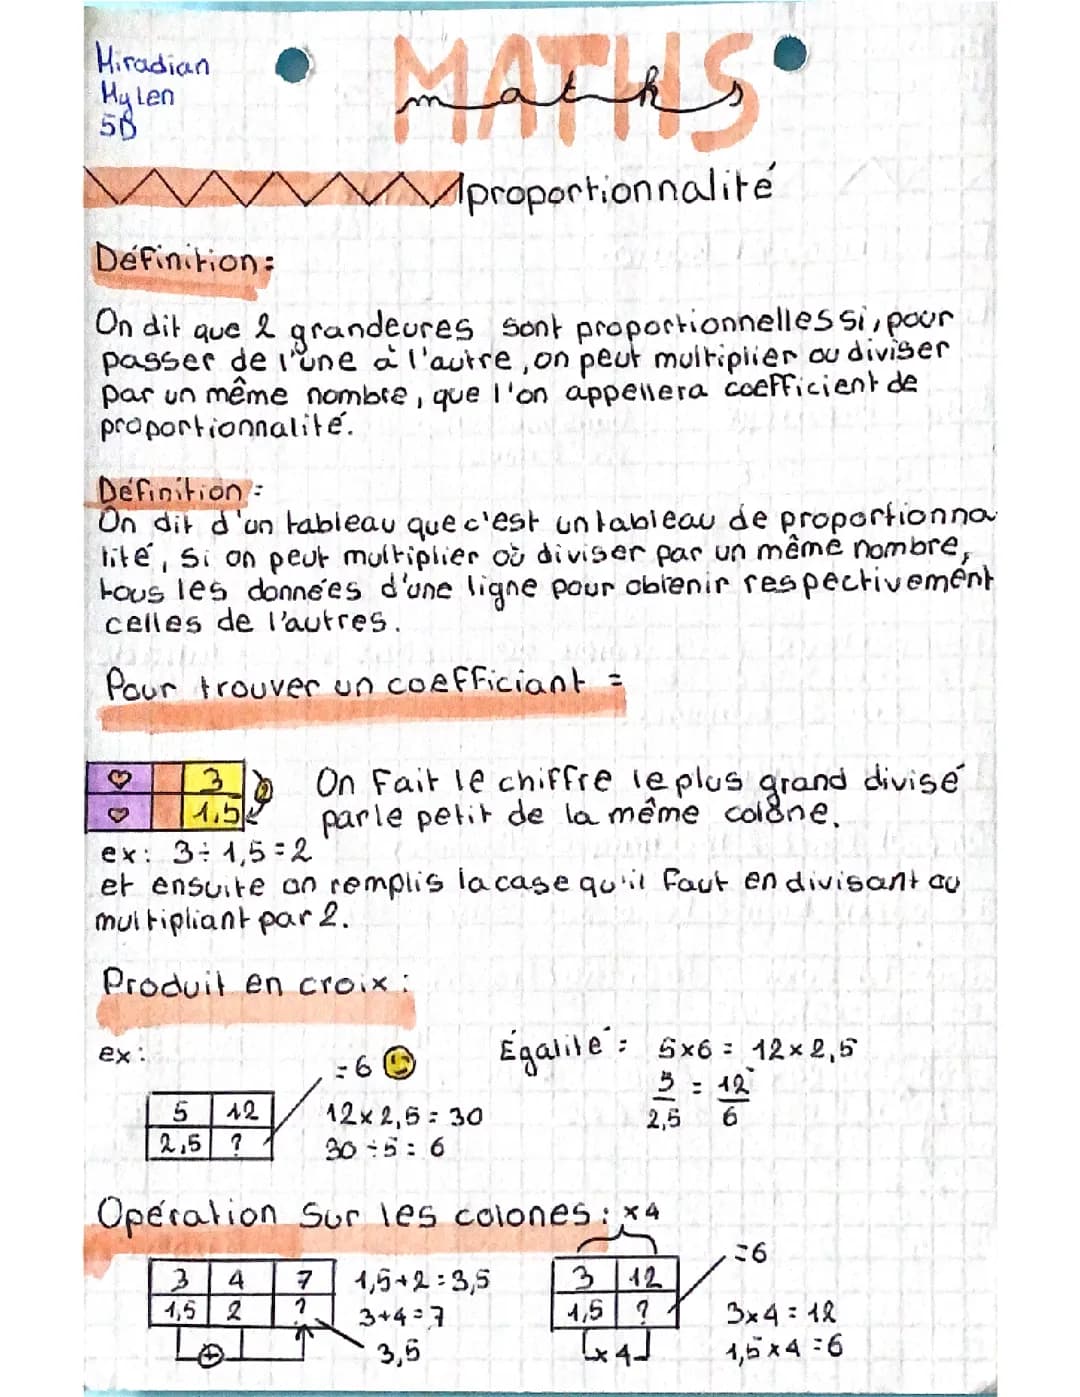 Hiradian
Hylen
5B
MATHS
maths
proportionnalité
Définition:
On dit que 2 grandeures sont proportionnelles si, pour
passer de l'une à l'autre, on peut multiplier ou diviser
par un même nombre, que l'on appellera coefficient de
proportionnalité.
Définition:
On dit d'un tableau que c'est un tableau de proportionna
lité, si on peut multiplier où diviser par un même nombre,
tous les données d'une ligne pour obtenir respectivement
celles de l'autres.
Pour trouver un coefficiant =
3
1,5
2
On fait le chiffre le plus grand divisé
par le petit de la même colone.
ex: 3÷1,5=2
et ensuite on remplis la case qu'il faut en divisant ou
multipliant par 2.
Produit en croix:
ex:
5 12
2,5 ?
=6
12×2,5=30
30÷5=6
Égalité: 5×6 = 12×2,5
5/2,5 = 12/6
Opération sur les colones:
3 4 7
1,5 2 ?
+
1,5+2=3,5
3+4=7
3,5
×4
3 12
1,5 ?
×4
=6
3×4=12
1,5×4=6